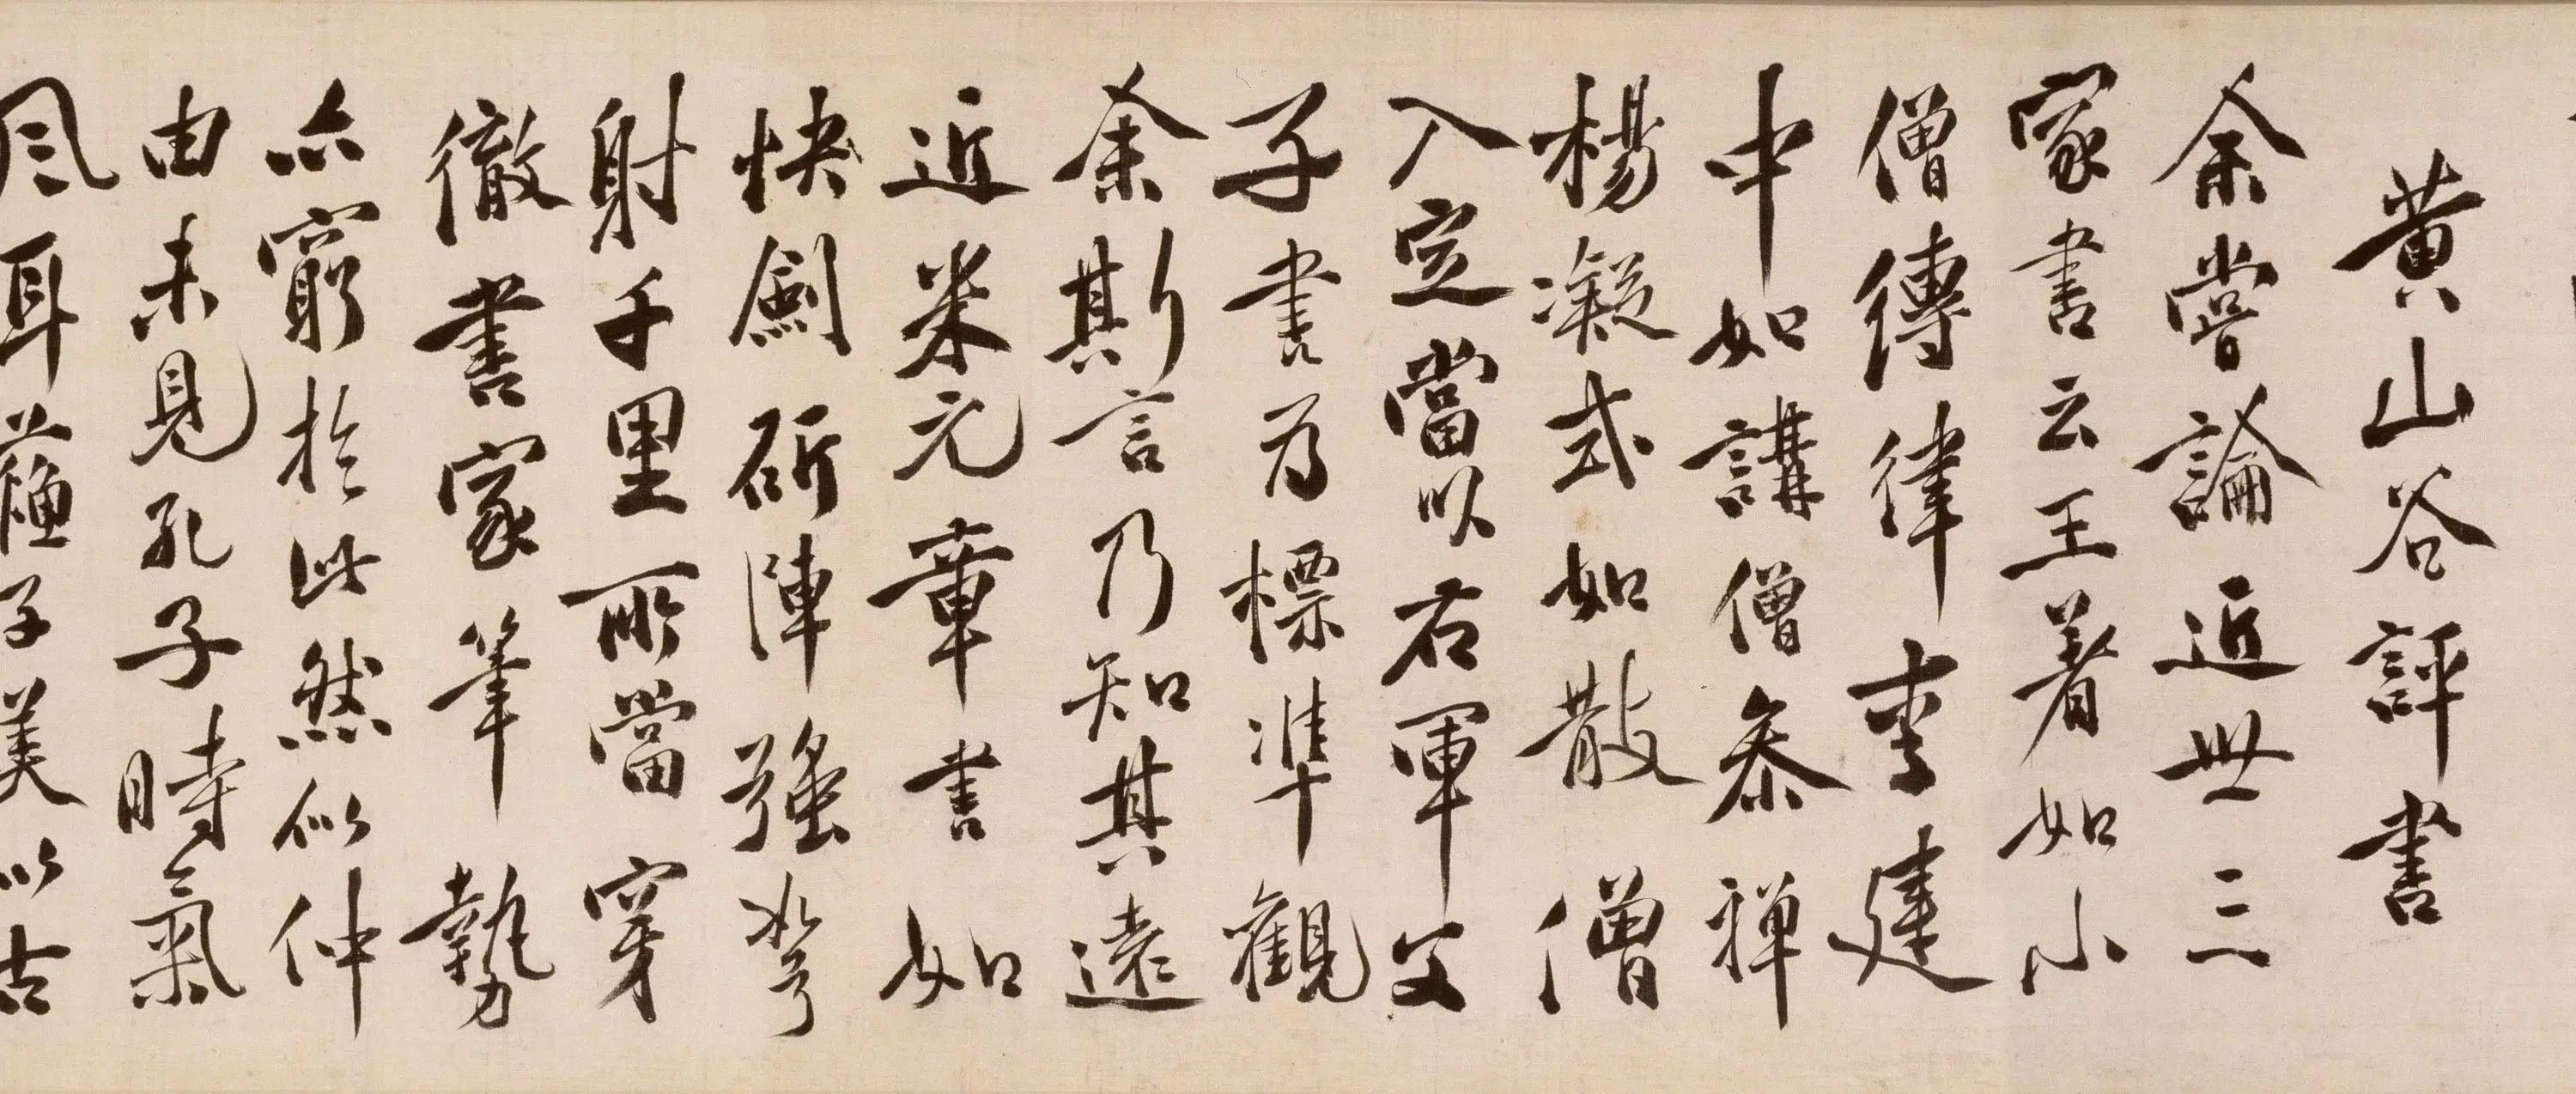 黄山谷評書
余嘗論近世三
家書云王著如小
僧縛律李建
中如講僧叅禪
楊凝式如散僧
入定當以右軍父
子書為標準觀
余斯言乃知其遠
近米元章書如
快劍斫陣強弩
射千里所當穿
徹書家筆勢
亦窮於此然似仲
由未見孔子時氣
風耳蘓子美似古